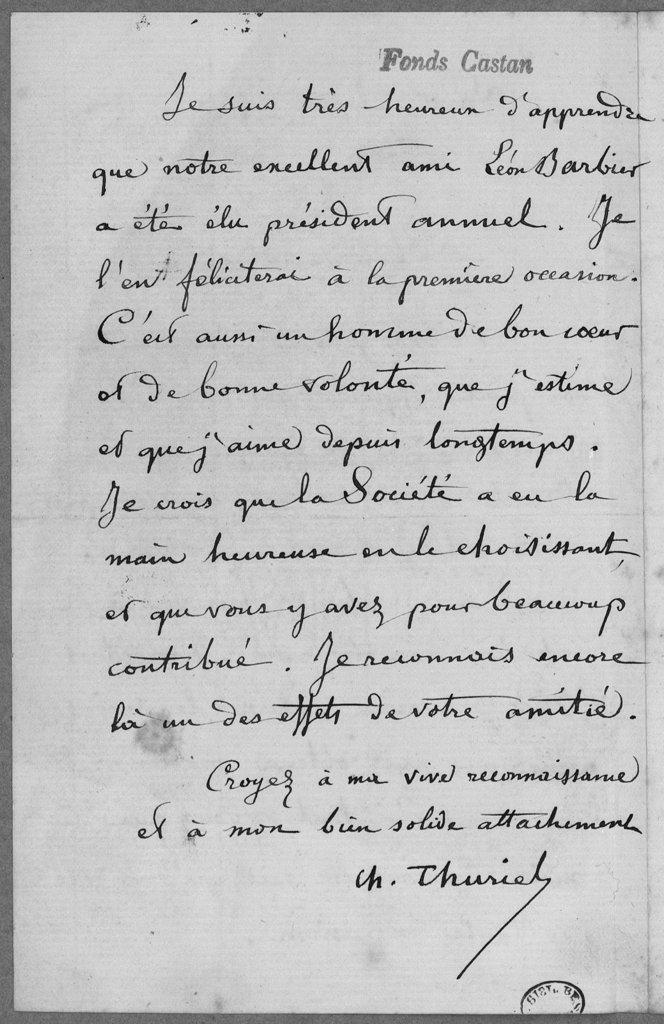 Fonds Castan
Je suis très heureux d'apprendre
que notre excellent ami Léon Barbier
a été élu président annuel. Je
l'en féliciterai à la première occasion.
C'est aussi un homme de bon cœur
et de bonne volonté, que j'estime
et que j'aime depuis longtemps.
Je crois que la Société a eu la
main heureuse en le choisissant,
et que vous y avez pour beaucoup
contribué. Je reconnais encore
là un des effets de votre amitié.
Croyez à ma vive reconnaissance
et à mon bien solide attachement
Ch. Thuriet
BIBL. BES